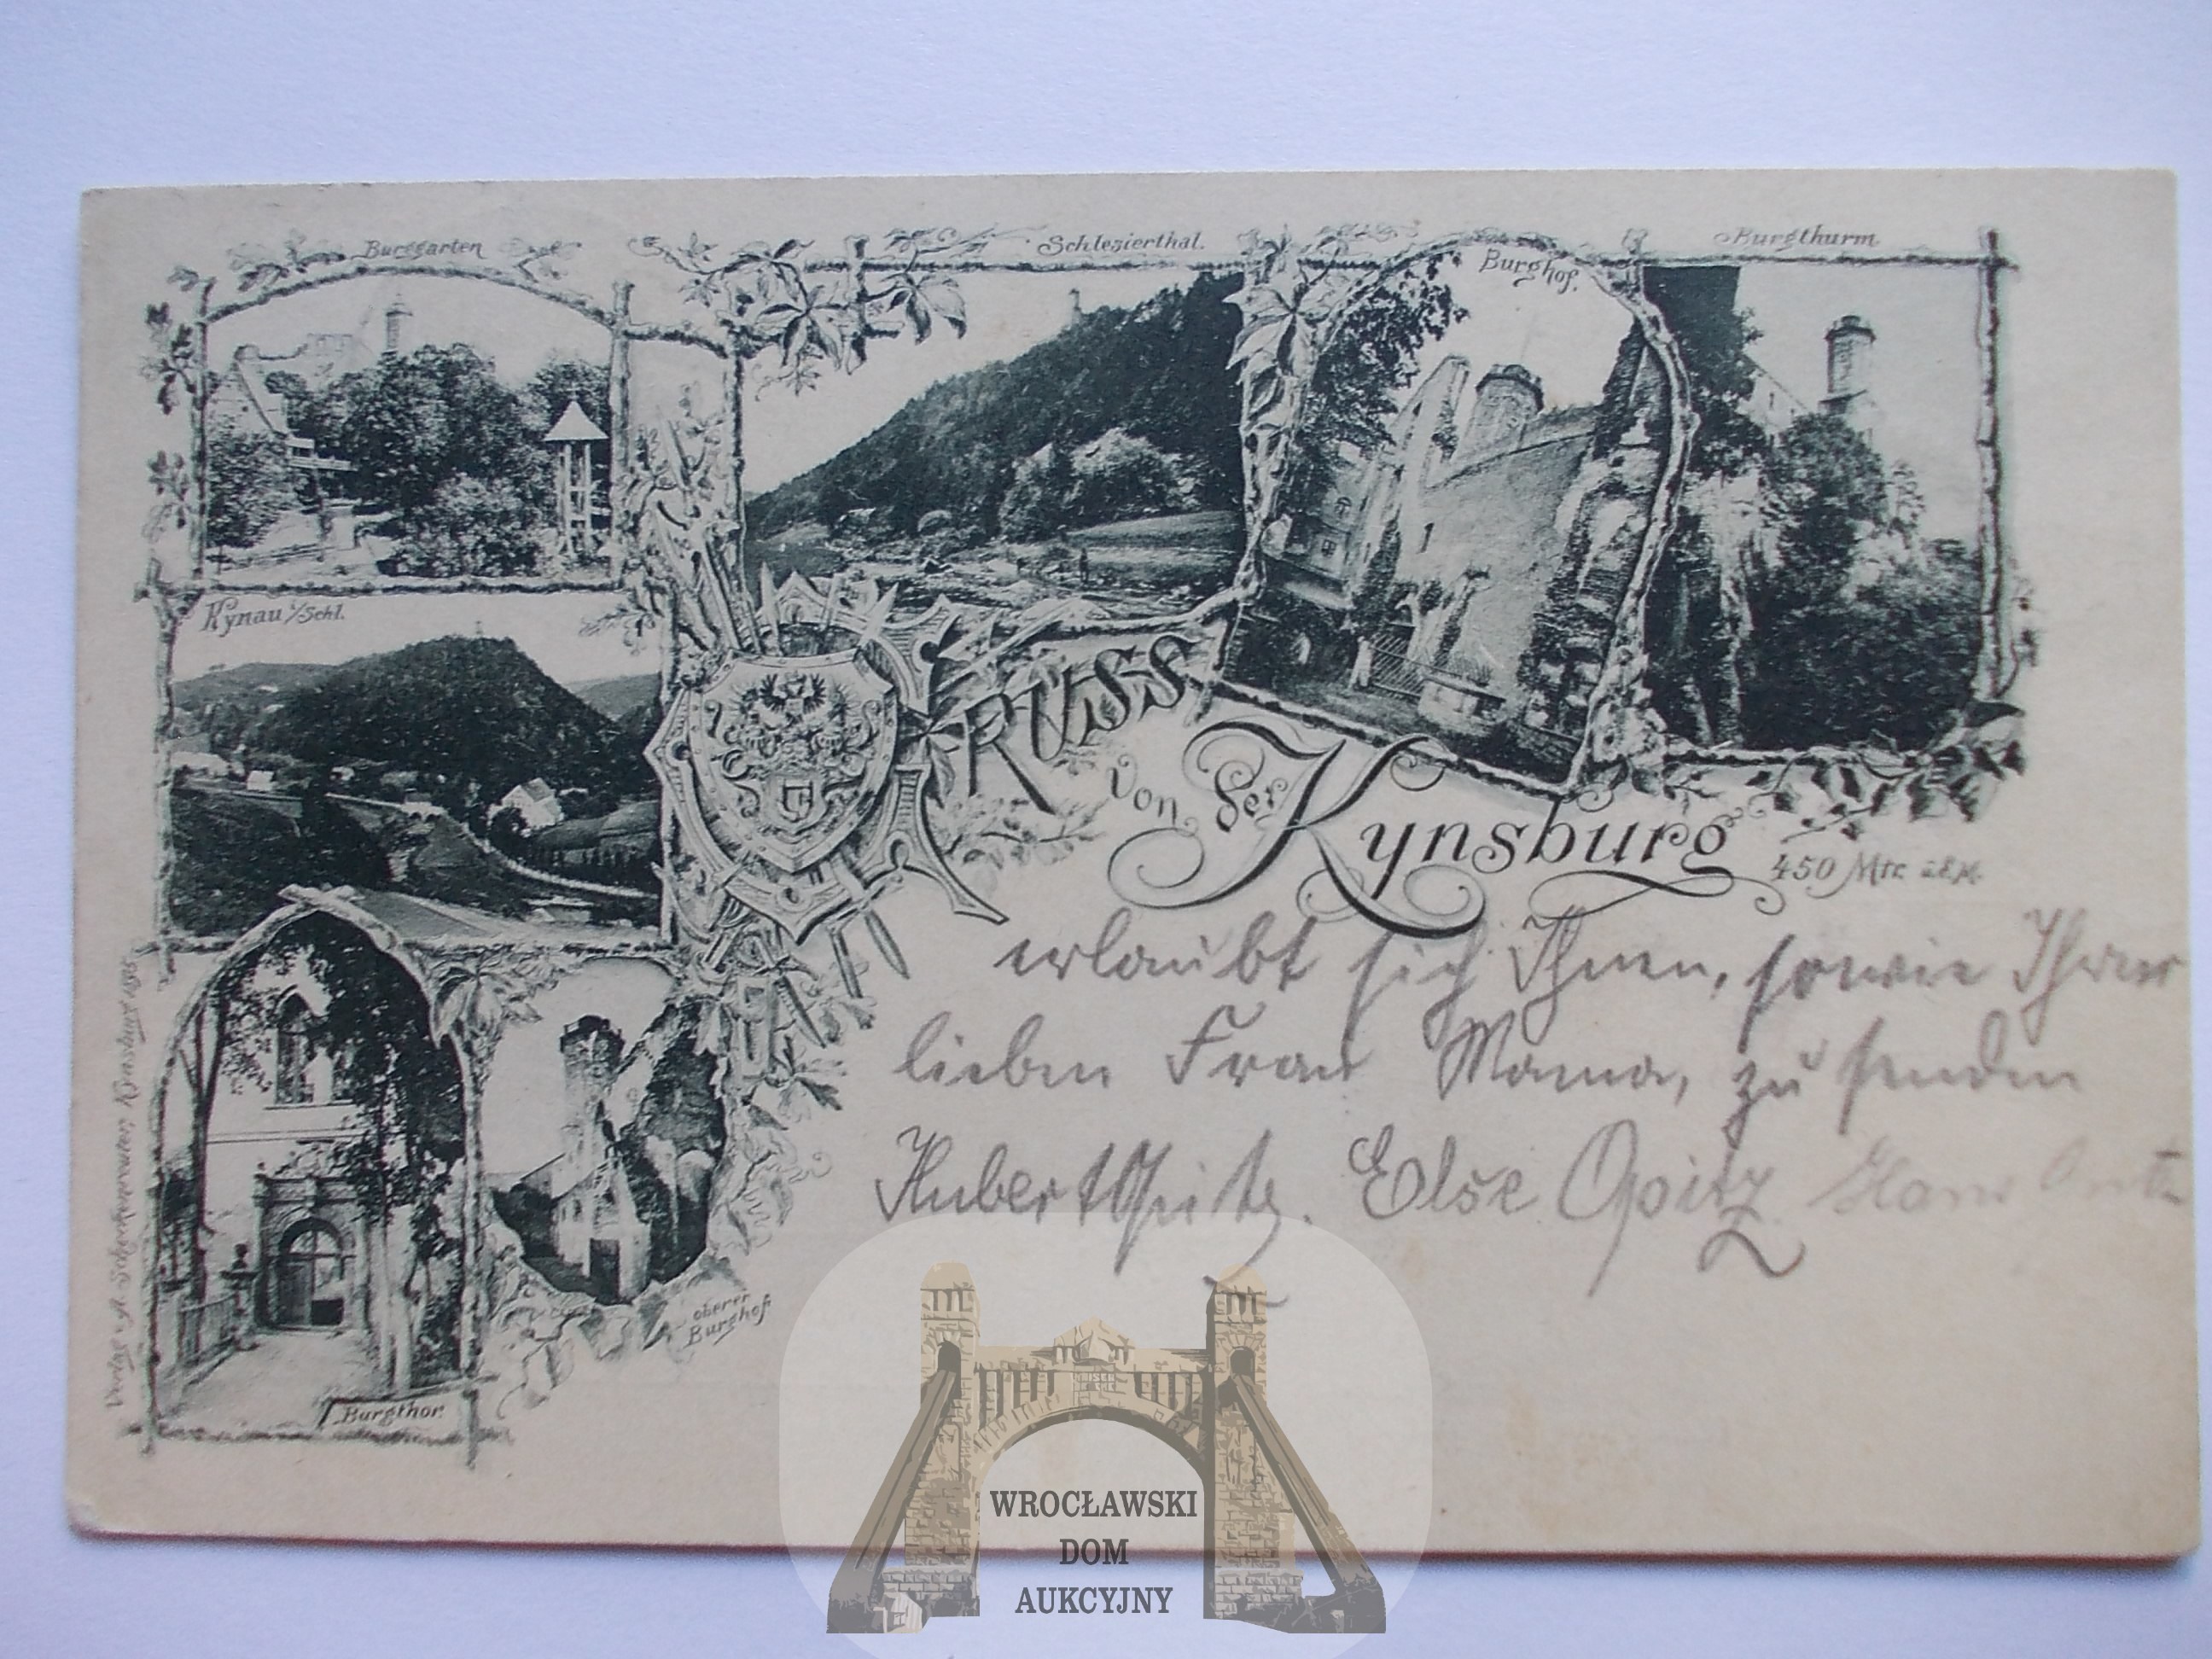 Burggarten
Schlesierthal.
Burghof.
Burgthurm
Kynau i/Schl.
GRUSS
von der
Kynsburg
450 Mtr. ü.d.M.
erlaubt sich Ihnen, sowie Ihrer
lieben Frau Mama, zu senden
Hubert Opitz. Else Opitz Hans
oberer
Burghof
Burgthor.
Verlag v. A. Kynsburg 1895
WROCŁAWSKI
DOM
AUKCYJNY